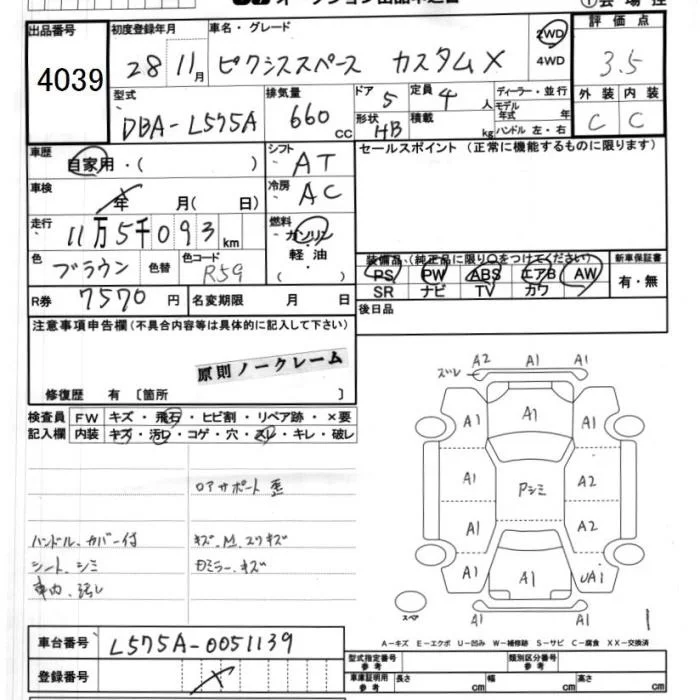 オークション出品申込書
① 会場控
出品番号 初度登録年月 車名・グレード 2WD 評価点
4039 28 11月 ピクシススペース カスタムX 4WD 3.5
型式 排気量 ドア 定員 ディーラー・並行 外装 内装
DBA-L575A 660 CC 5 4人 モデル年式 年 C C
形状 HB 積載 kg ハンドル 左・右
車歴 シフト セールスポイント (正常に機能するものに限ります)
自家用・( ) AT
車検 年 月( 日) 冷房 AC
走行 11万5千093km 燃料 ガソリン
軽油
・
( )
色 ブラウン 色替 色コード R59
装備品 (純正品に限り○をつけてください) 新車保証書
PS PW ABS エアB AW 有・無
SR ナビ TV カワ
R券 7570円 名変期限 月 日 後日品
注意事項申告欄(不具合内容等は具体的に記入して下さい)
原則ノークレーム
修復歴 有 〔箇所 〕
検査員 FW キズ・飛石・ヒビ割・リペア跡・×要
記入欄 内装 キズ・汚レ・コゲ・穴・スレ・キレ・破レ
ロアサポート 歪
ハンドル、カバー付
シート、シミ
車内、汚レ
キズ、M、スリキズ
Dミラー、キズ
ズレ A2 A1 A1
A1 A1 A1
A1 Pシミ A2
A1 A2
A1 A1 UA1
スペア
A-キズ E-エクボ U-凹み W-補修跡 S-サビ C-腐食 XX-交換済
車台番号 L575A-0051139
登録番号
型式指定番号 参考 類別区分番号 参考
車庫証明用 参考 長さ cm 幅 cm 高さ cm